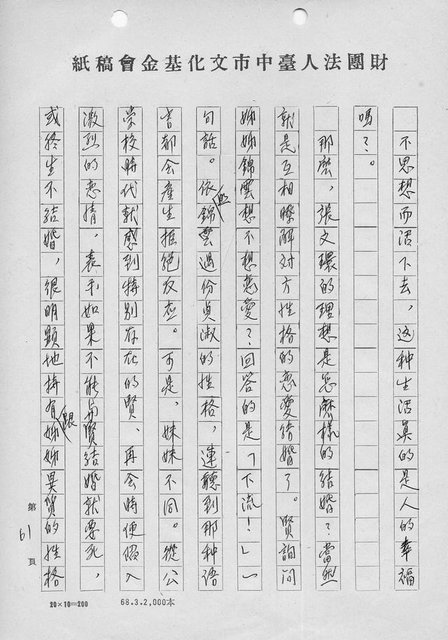 財團法人臺中市文化基金會稿紙
不思想而活下去，這种生活真的是人的幸福
嗎？。
那麼，張文環的理想是怎麼樣的結婚？當然
就是互相瞭解对方性格的恋愛結婚了。賢詢问
姊姊錦雲想不想恋愛？回答的是「下流！」一
句話。依錦雲過份貞淑的性格，連聽到那种语
言都会產生拒絕反应。可是，妹妹不同。從公
学校時代就感到特別存在的賢、再会時便假入
激烈的恋情，表示如果不能与賢結婚就要死，
或終生不結婚，很明顯地持有跟姊姊異質的性格
第61頁
20×10=200
68.3.2,000本